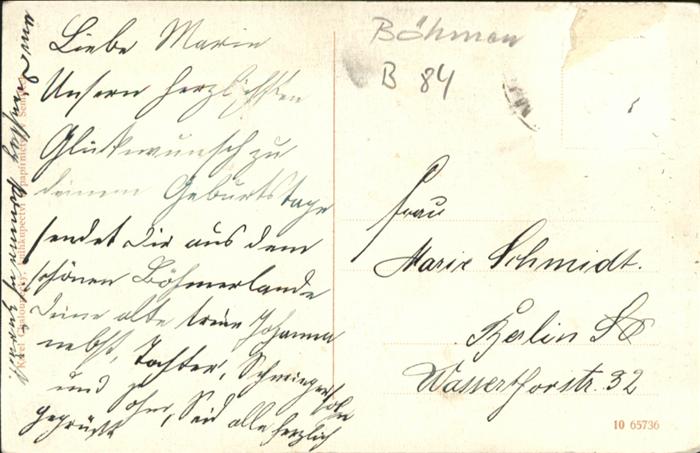 Liebe Marie
Unsern herzlichsten
Glückwunsch zu
deinem Geburtstage
sendet Dir aus dem
schönen Böhmerlande
deine alte treue Johanna
nebst Tochter, Schwiegersohn
und
Seid alle herzlich
gegrüßt
Böhmen
B 84
Frau
Marie Schmidt.
Berlin SO
Wasserthorstr. 32
10 65736